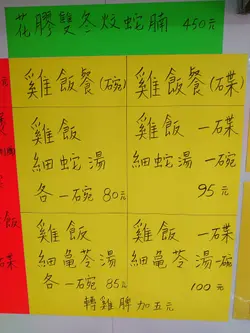 花膠雙冬炆蛇腩 450元
雞飯餐(碗)
雞飯
細蛇湯
各一碗 80元
雞飯
細龜苓湯
各一碗 85元
雞飯餐(碟)
雞飯 一碟
細蛇湯 一碗
95元
雞飯 一碟
細龜苓湯 一碗
100元
轉雞脾加五元